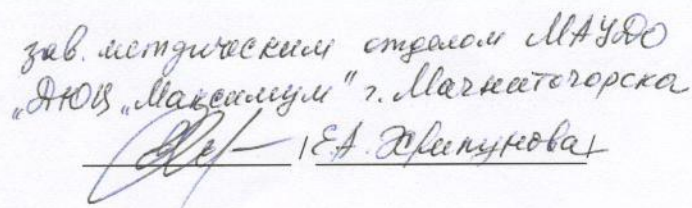 зав. методическим отделом МАУДО
„ДЮЦ „Максимум" г. Магнитогорска
/Е.А. Хрипунова/